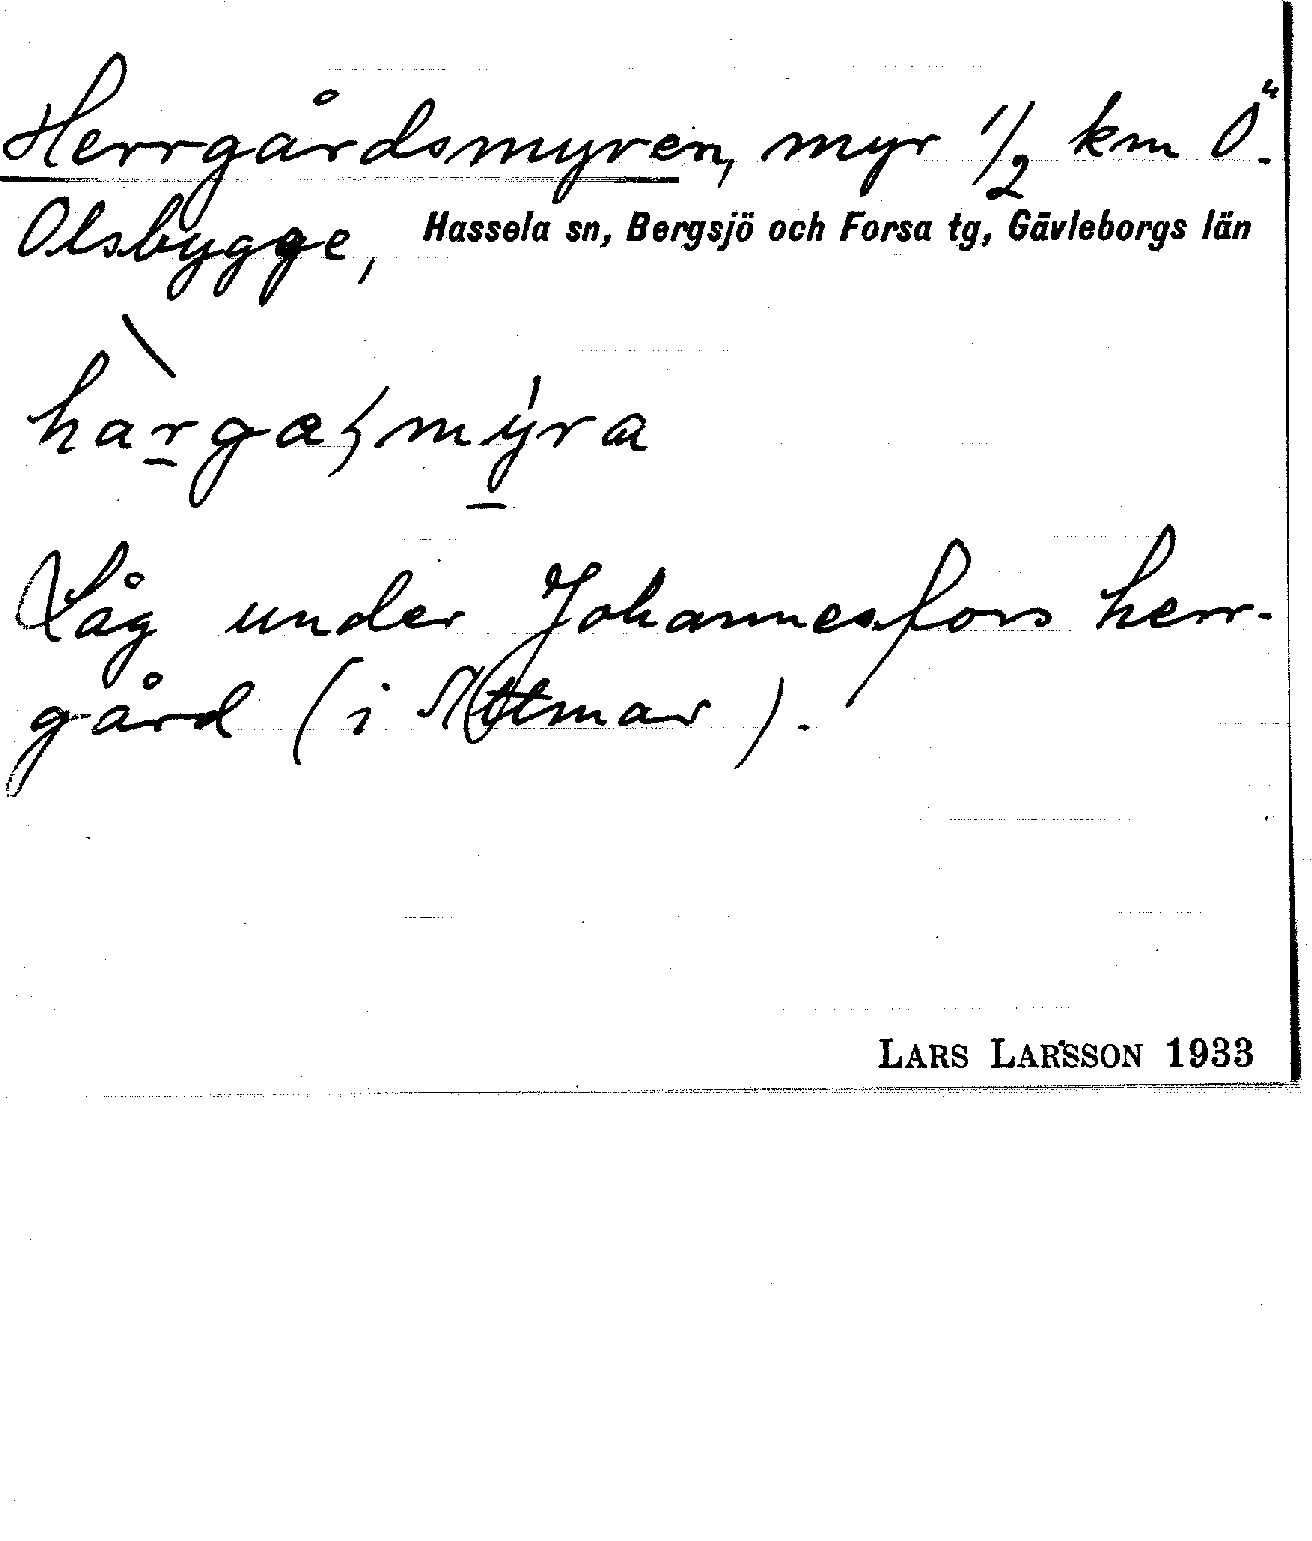 Herrgårdsmyren, myr 1/2 km Ö.
Olsbygge, Hassela sn, Bergsjö och Forsa tg, Gävleborgs län
Låg under Johannesfors herr-
gård (i Attmar).
LARS LARSSON 1933